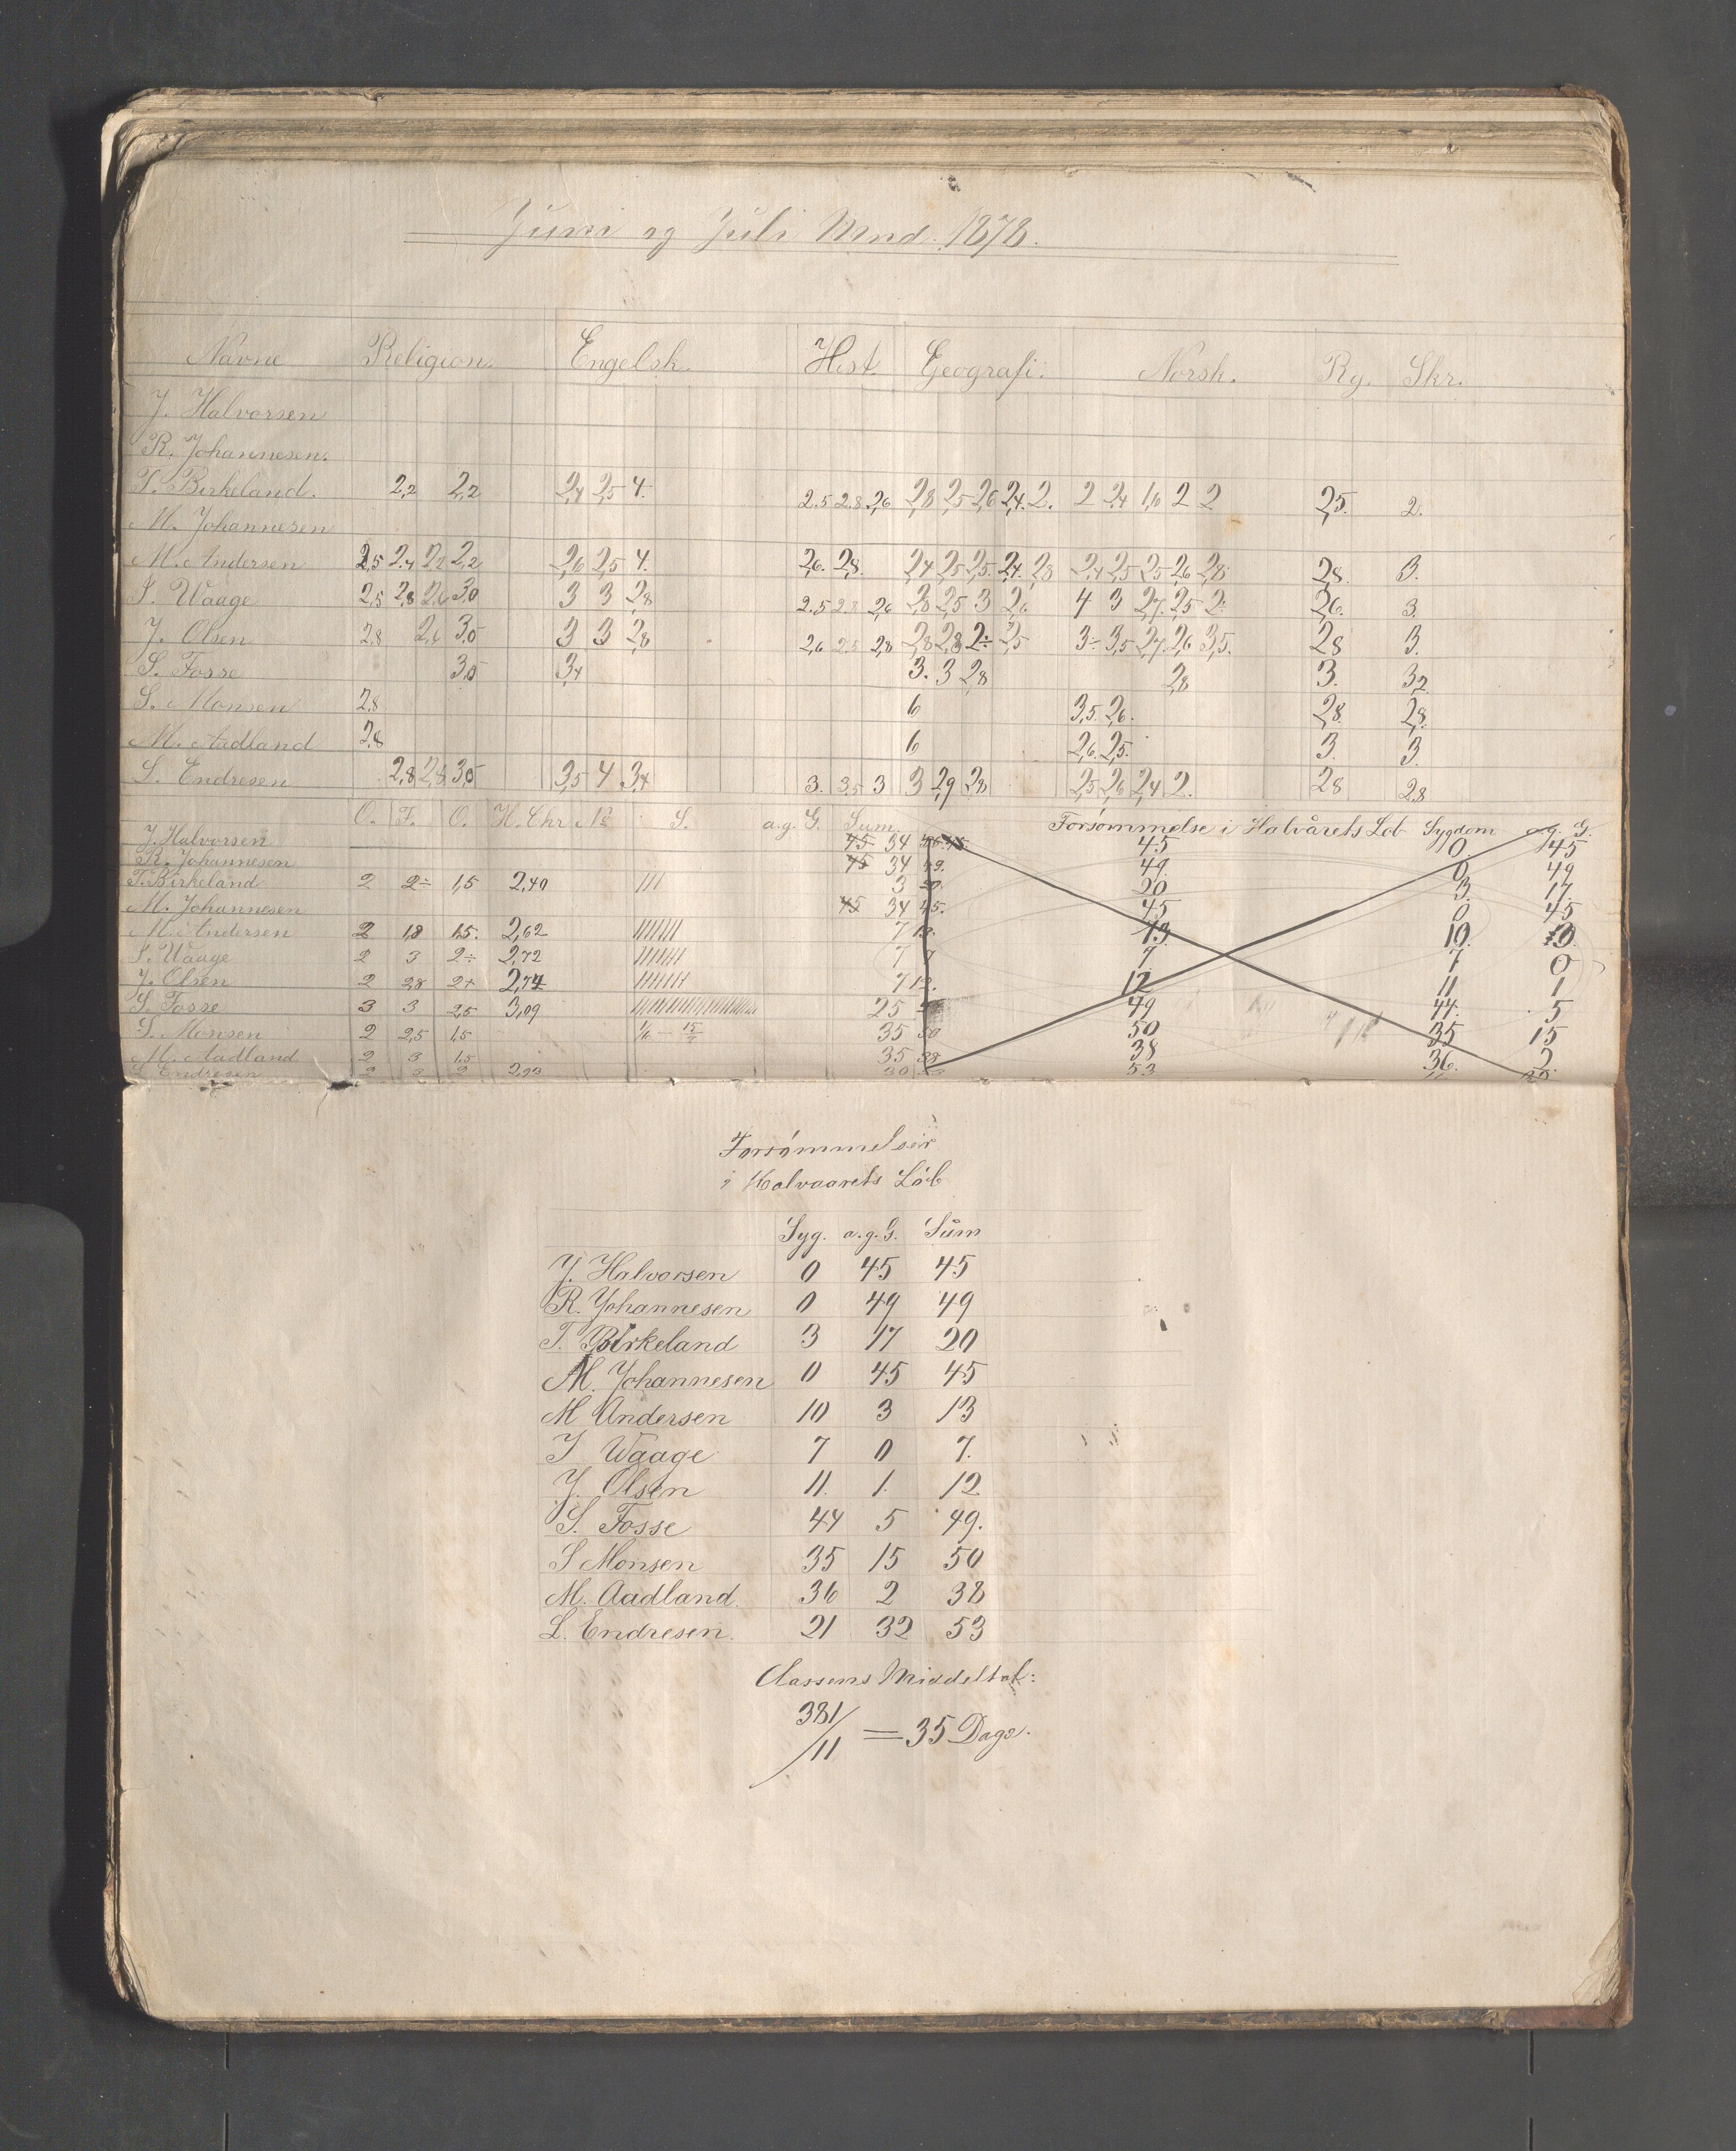 Juni og Juli Mnd. 1878.
Navne Religion. Engelsk. Hist. Geografi. Norsk. Rg. Skr.
J. Halvorsen
R. Johannesen.
T. Birkeland. 2,2 2,2 2,4 2,5 4. 2.5 2.8 2,6 2,8 2,5 2,6 2,4. 2. 2 2,4 1,6 2 2 2,5. 2.
M. Johannesen
M. Andersen 2,5 2,4 2,2 2,2 2,6 2,5 4. 2,6. 2,8. 2,4 2,5 2,5. 2,4. 2,8 2,4 2,5 2,5 2,6 2,8. 2,8. 3.
S. Waage 2,5 2,8 2,6 3,0 3 3 2,8 2.5 2.8 2,6 2,8 2,5 3 2,6 4 3 2,7. 2,5 2. 2,6. 3.
J. Olsen 2,8 2,6 3,5 3 3 2,8 2,6 2.5 2,8 2,8 2,8 2÷ 2,5 3÷ 3,5 2,7. 2,6 3,5. 2,8 3.
S. Fosse 3,5 3,4 3. 3 2,8 2,8 3. 3,2
S. Monsen 2,8 6 3,5. 2,6. 2,8. 2,8.
M. Aadland 2,8 6 2,6. 2,5. 3. 3.
L. Endresen 2,8 2,8 3,5 3,5 4 3,4 3. 3,5 3 3 2,9 2,8 2,5 2,6 2,4 2. 2,8 2,8
O. F. O. H. Chr. S. a.g. G. Sum Forsömmelse i Halvårets Löb Sygdom a.g. G.
J. Halvorsen 45 34 45. 45 0 45
R. Johannesen 45 34 49. 49. 0 49
T. Birkeland 2 2÷ 1,5 2,40 /// 3 20. 20 3. 17.
M. Johannesen 45 34 45. 45 0 45
M. Andersen 2 1,8 1,5. 2,62 /////// 7 13. 13 10. 3.
S. Waage 2 3 2÷ 2,72 /////// 7 7 7. 7 0
J. Olsen 2 2,8 2+ 2,74 /////// 7 12. 12 11 1
S. Fosse 3 3 2,5 3,09 25 49 44. 5
S. Monsen 2 2,5 1,5 35 50 50 35 15
M. Aadland 2 3 1,5 35 38 38 36. 2.
L. Endresen 2 3 2 2,93 30 53
Forsömmelser
i Halvaarets Löb
Syg. a.g. G. Sum
J. Halvorsen 0 45 45
R. Johannesen 0 49 49
T. Birkeland 3 17 20
M. Johannesen 0 45 45
M Andersen 10 3 13
S Waage 7 0 7.
J. Olsen 11. 1. 12
S. Fosse 44 5 49.
S Monsen 35 15 50
M. Aadland. 36 2 38
L. Endresen. 21 32 53
Classens Middeltal:
381/11 = 35 Dage.